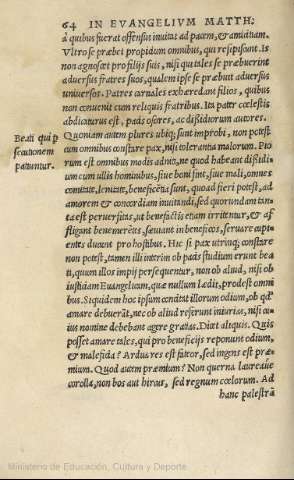 64 IN EVANGELIVM MATTH:
à quibus fuerat offensus inuitat ad pacem, & amicitiam.
Vltro se præbet propicium omnibus, qui resipiscant. Is
non agnoscet pro filijs suis, nisi qui tales se præbuerint
aduersus fratres suos, qualem ipse se præbuit aduersus
uniuersos. Patres carnales exhæredant filios, quibus
non conuenit cum reliquis fratribus. Ita pater cœlestis
abdicaturus est, pacis osores, ac dissidiorum autores.
Quoniam autem plures ubiq; sunt improbi, non potest
cum omnibus constare pax, nisi tolerantia malorum. Pio
rum est omnibus modis adniti, ne quod habeant dissidi
um cum ullis hominibus, siue boni sint, siue mali, omnes
comitate, lenitate, beneficentia sunt, quoad fieri potest, ad
amorem & concordiam inuitandi, sed quorundam tan-
ta est peruersitas, ut beneficijs etiam irritentur, & af
fligant benemerētes, sæuiant in beneficos, seruare cupi-
entes ducant pro hostibus. Hic si pax utrinq; constare
non potest, tamen illi interim ob pacis studium erunt bea
ti, quum illos impij persequentur, non ob aliud, nisi ob
iustitiam Euangelicam, quæ nullum lædit, prodest omni
bus. Siquidem hoc ipsum concitat illorum odium, ob qd'
amare debuerāt, nec ob aliud referunt iniurias, nisi cu-
ius nomine debebant agere gratias. Dicet aliquis. Quis
posset amare tales, qui pro beneficijs reponunt odium,
& maleficia? Ardua res est fateor, sed ingens est præ-
mium. Quod autem præmium? Non querna laureaue
corolla, non bos aut hircus, sed regnum cœlorum. Ad
hanc palestrā
Beati qui p
secutionem
patiuntur.
Ministerio de Educación, Cultura y Deporte